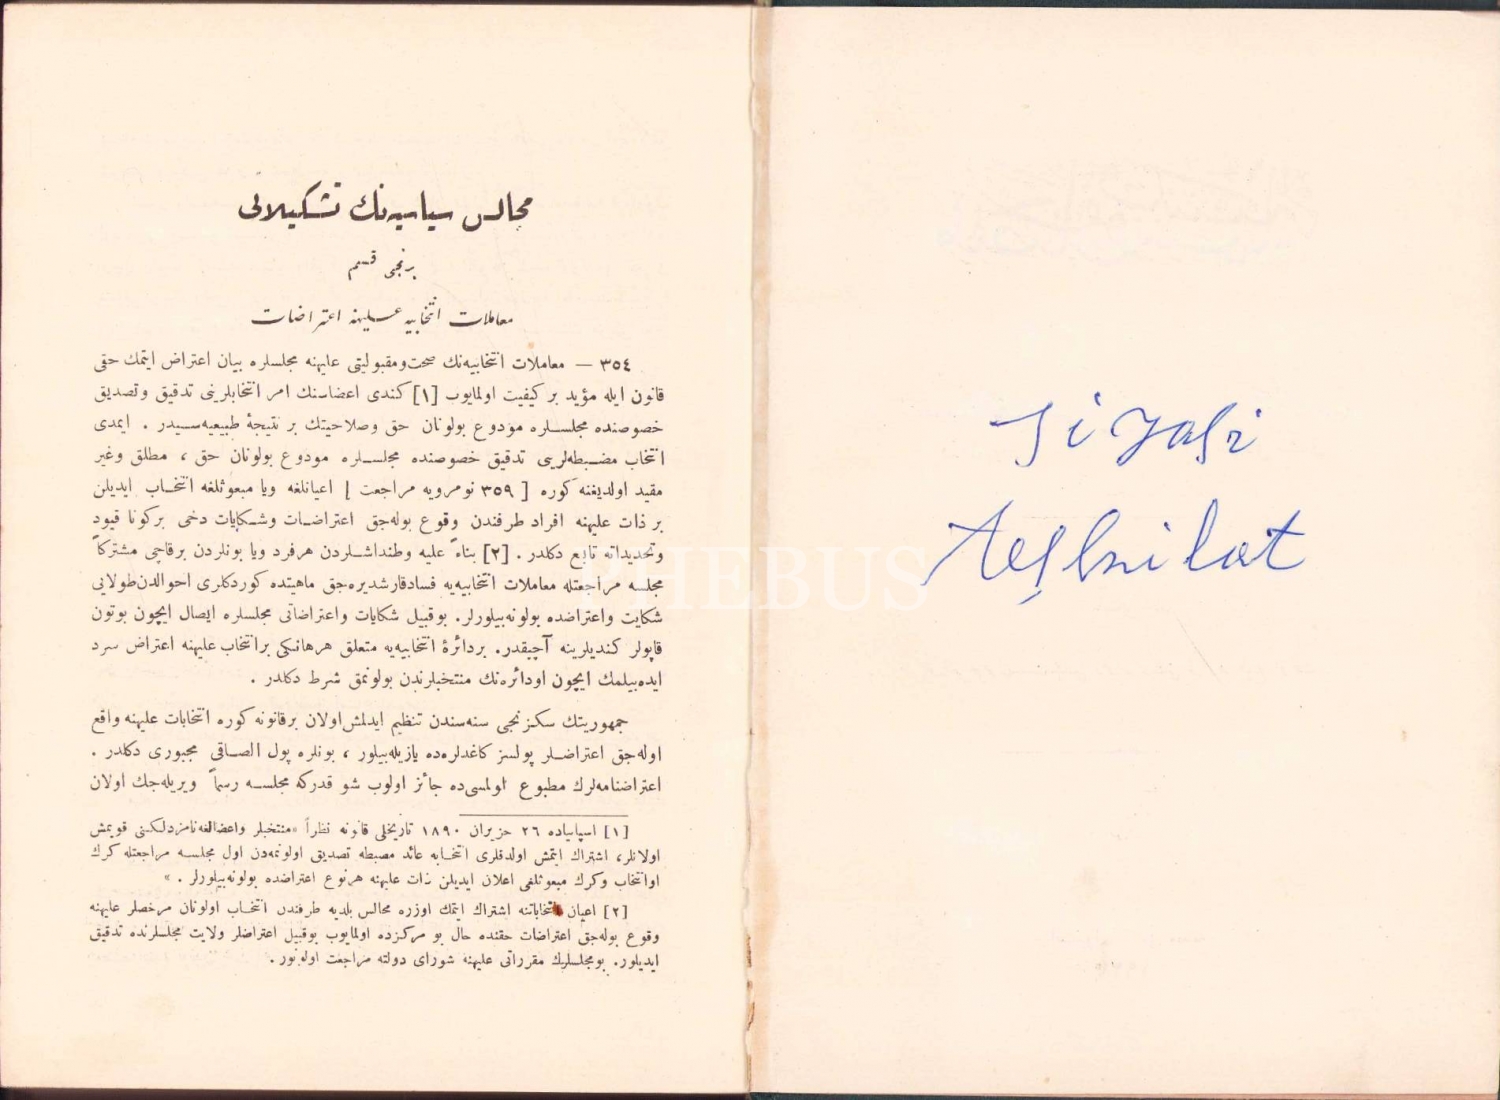 مجالس سیاسیه‌نك تشکیلاتی
برنجی قسم
معاملات انتخابیه علیهنه اعتراضات
٣٥٤ — معاملات انتخابیه‌نك صحت‌ومقبولیتی علیهنه مجلسلره بیان اعتراض ایتمك حقی
قانون ایله مؤید بر کیفیت اولمایوب [١] کندی اعضاسنك امر انتخابلرینی تدقیق وتصدیق
خصوصنده مجلسلره مودوع بولونان حق وصلاحیتك بر نتیجهٔ طبیعیه‌سیدر . ایمدی
انتخاب مضبطه‌لرینی تدقیق خصوصنده مجلسلره مودوع بولونان حق ، مطلق وغیر
مقید اولدیغنه کوره [ ٣٥٩ نومرویه مراجعت ] اعیانلغه ویا مبعوثلغه انتخاب ایدیلن
بر ذات علیهنه افراد طرفندن وقوع بوله‌جق اعتراضات وشکایات دخی برکونا قیود
وتحدیداته تابع دکلدر . [٢] بناءً علیه وطنداشلردن هرفرد ویا بونلردن برقاچی مشترکاً
مجلسه مراجعتله معاملات انتخابیه‌یه فسادقارشدیره‌جق ماهیتده کوردکلری احوالدن‌طولایی
شکایت واعتراضده بولونه‌بیلورلر. بوقبیل شکایات واعتراضاتی مجلسلره ایصال ایچون بوتون
قاپولر کندیلرینه آچیقدر. بردائرهٔ انتخابیه‌یه متعلق هرهانکی برانتخاب علیهنه اعتراض سرد
ایده‌بیلمك ایچون اودائره‌نك منتخبلرندن بولونمق شرط دکلدر .
جمهوریتك سکزنجی سنه‌سندن تنظیم ایدلمش‌اولان برقانونه کوره انتخابات علیهنه واقع
اوله‌جق اعتراضلر پولسز کاغدلره‌ده یازیله‌بیلور ، بونلره پول الصاقی مجبوری دکلدر .
اعتراضنامه‌لرك مطبوع اولمسی‌ده جائز اولوب شو قدرکه مجلسه رسماً ویریله‌جك اولان
[١] اسپانیاده ٢٦ حزیران ١٨٩٠ تاریخلی قانونه نظراً «منتخبلر واعضالغه‌نامزدلکنی قویمش
اولانلر، اشتراك ایتمش اولدقلری انتخابه عائد مضبطه تصدیق اولونمه‌دن اول مجلسه مراجعتله کرك
اوانتخاب وکرك مبعوثلغی اعلان ایدیلن ذات علیهنه هرنوع اعتراضده بولونه‌بیلورلر . »
[٢] اعیان انتخاباتنه اشتراك ایتمك اوزره مجالس بلدیه طرفندن انتخاب اولونان مرخصلر علیهنه
وقوع بوله‌جق اعتراضات حقنده حال بو مرکزده اولمایوب بوقبیل اعتراضلر ولایت مجلسلرنده تدقیق
ایدیلور. بومجلسلرك مقرراتی علیهنه شورای دولته مراجعت اولنور .
Siyasi
Teşkilat
PHEBUS